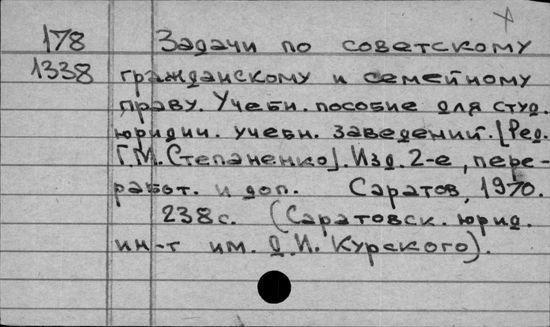 178 Задачи по советскому
1338 гражданскому и семейному
праву. Учебн. пособие для студ.
юридич. учебн. заведений. [Ред.
Г.М. Степаненко]. Изд. 2-е, пере-
работ. и доп. Саратов, 1970.
238с. (Саратовск. юрид.
ин-т им. Д.И. Курского).